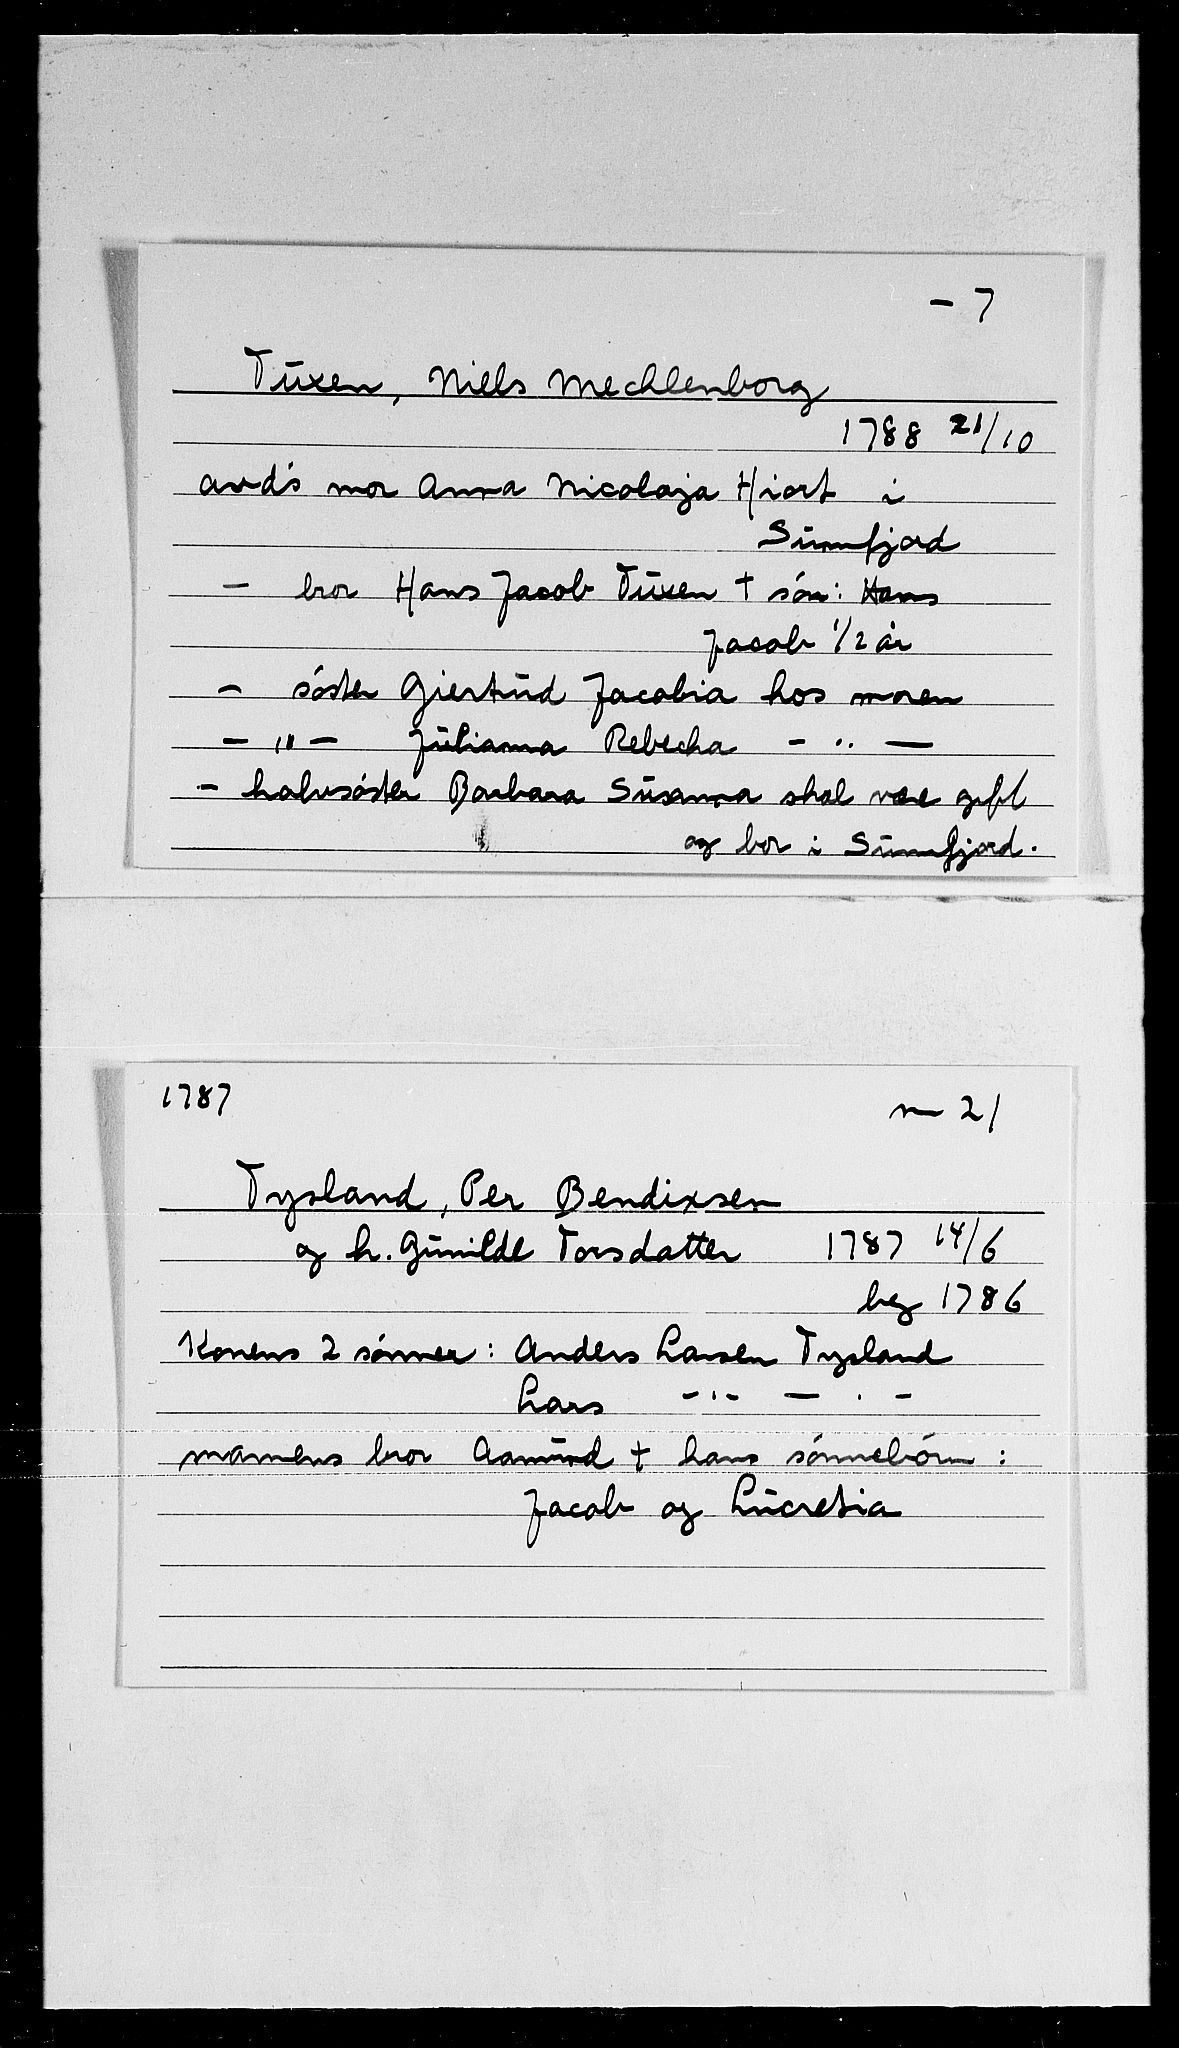 - 7
Tuxen, Niels Mechlenborg
1788 21/10
avd's mor Anna Nicolaja Hiort i
Sunnfjord
- bror Hans Jacob Tuxen † sön: Hans
Jacob 1/2 år
- söster Giertrud Jacobia hos moren
- " - Julianna Rebecha - " -
- halvsöster Barbara Susanna skal være gift
og bor i Sunnfjord.
1787
m 21
Tysland, Per Bendixsen
og h. Gunilde Torsdatter 1787 14/6
beg 1786
Konens 2 sönner: Anders Larsen Tysland
Lars - " - - " -
mannens bror Aamund † hans sönnebörn:
Jacob og Lucretia